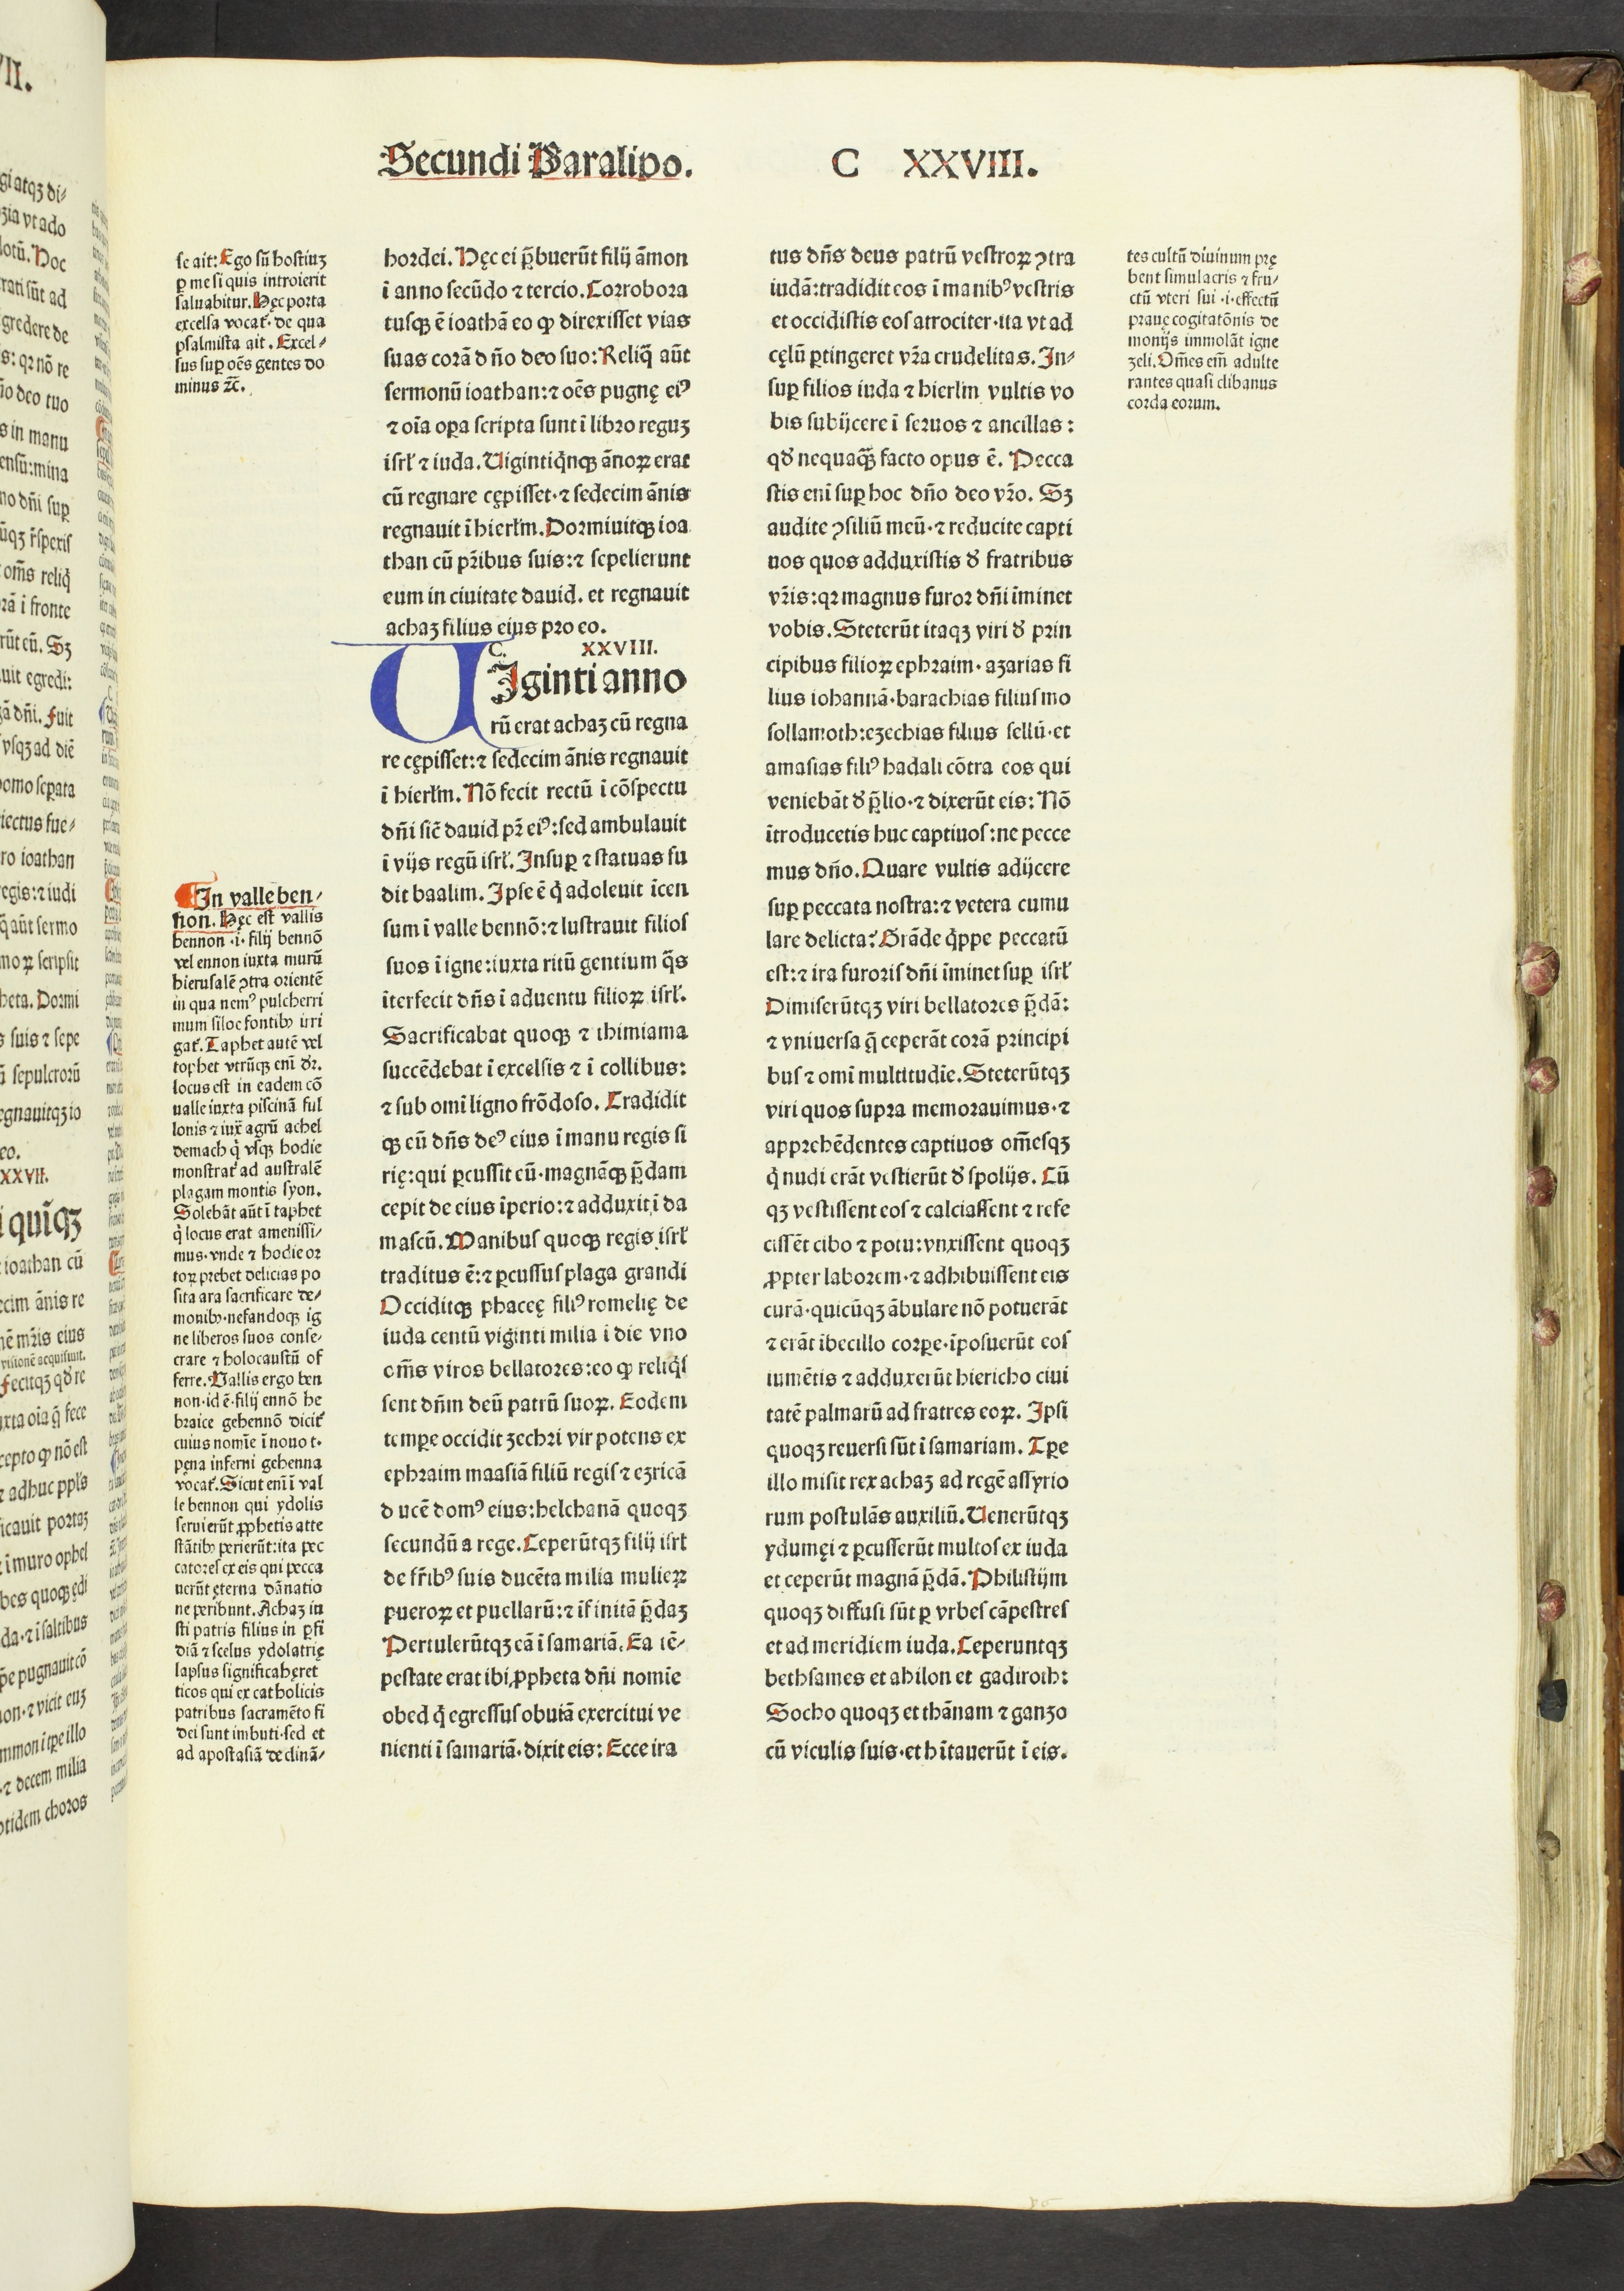 Secundi Paralipo. C XXVIII.
se ait: Ego sũ hostiuꝫ
ꝑ me si quis introierit
saluabitur. Hęc porta
excelsa vocat᷑. de qua
psalmista ait. Excel⸗
sus suꝑ oẽs gentes do
minus ⁊c̃.
¶ In valle ben⸗
non. Hęc est vallis
bennon .i. filij bennõ
vel ennon iuxta murũ
hierusalẽ ꝯtra orientẽ
in qua nemꝰ pulcherri
mum siloe fontibꝰ irri
gat᷑. Taphet autẽ vel
tophet vtrũqꝫ eni᷑ dr̃.
locus est in eadem cõ
ualle iuxta piscinã ful
lonis ⁊ iux̃ agrũ achel
demach q̇ vsqꝫ hodie
monstrat᷑ ad australẽ
plagam montis syon.
Solebãt aũt ĩ taphet
q̇ locus erat amenissi⸗
mus. vnde ⁊ hodie or
toꝝ prebet delicias po
sita ara sacrificare de⸗
monibꝰ. nefandoqꝫ ig
ne liberos suos conse⸗
crare ⁊ holocaustũ of
ferre. Vallis ergo ben
non. id ẽ. filij ennõ he
braice gehennõ dicit᷑
cuius nomĩe ĩ nouo t.
pęna inferni gehenna
vocat᷑. Sicut eni᷑ ĩ val
le bennon qui ydolis
seruierũt ꝓphetis atte
stãtibꝰ perierũt: ita pec
catores ex eis qui pecca
uerũt ęterna dãnatio
ne peribunt. Achaz iu
sti patris filius in ꝑfi
diã ⁊ scelus ydolatrię
lapsus significat hęret
ticos qui ex catholicis
patribus sacramẽto fi
dei sunt imbuti. sed et
ad apostasiã declinã⸗
hordei. Hęc ei p̃buerũt filij ãmon
ĩ anno secũdo ⁊ tercio. Corrobora
tusqꝫ ẽ ioathã eo ꝙ direxisset vias
suas corã dño deo suo: Reliq̃ aũt
sermonũ ioathan: ⁊ oẽs pugnę eiꝰ
⁊ oĩa oꝑa scripta sunt ĩ libro reguꝫ
isrl̃ ⁊ iuda. Uigintiq̇nqꝫ ãnoꝝ erat
cũ regnare cępisset. ⁊ sedecim ãnis
regnauit ĩ hierlm̃. Dormiuitqꝫ ioa
than cũ pr̃ibus suis: ⁊ sepelierunt
eum in ciuitate dauid. et regnauit
achaz filius eius pro eo.
C. XXVIII.
UIginti anno
rũ erat achaz cũ regna
re cępisset: ⁊ sedecim ãnis regnauit
ĩ hierlm̃. Nõ fecit rectũ ĩ cõspectu
dñi sic̃ dauid pr̃ eiꝰ: sed ambulauit
ĩ vijs regũ isrl̃. Insuꝑ ⁊ statuas fu
dit baalim. Ipse ẽ q̇ adoleuit ĩcen
sum ĩ valle bennõ: ⁊ lustrauit filios
suos ĩ igne: iuxta ritũ gentium q̃s
ĩterfecit dñs ĩ aduentu filioꝝ isrl̃.
Sacrificabat quoqꝫ ⁊ thimiama
succẽdebat ĩ excelsis ⁊ ĩ collibus:
⁊ sub omi᷑ ligno frõdoso. Tradidit
qꝫ eũ dñs deꝰ eius ĩ manu regis si
rię: qui ꝑcussit eũ. magnãqꝫ p̃dam
cepit de eius ĩperio: ⁊ adduxit ĩ da
mascũ. Manibus quoqꝫ regis isrl̃
traditus ẽ: ⁊ ꝑcussus plaga grandi
Occiditqꝫ phaceę filiꝰ romelię de
iuda centũ viginti milia ĩ die vno
om̃s viros bellatores: eo ꝙ reliq̇s
sent dñm deũ patrũ suoꝝ. Eodem
temꝑe occidit zechri vir potens ex
ephraim maasiã filiũ regis ⁊ ezricã
ducẽ domꝰ eius: helchanã quoqꝫ
secundũ a rege. Ceperũtqꝫ filij isrl̃
de fr̃ibꝰ suis ducẽta milia mulieꝝ
pueroꝝ et puellarũ: ⁊ ĩfinitã p̃daꝫ
Pertulerũtqꝫ eã ĩ samariã. Ea tẽ⸗
pestate erat ibi ꝓpheta dñi nomĩe
obed q̇ egressus obuiã exercitui ve
nienti ĩ samariã. dixit eis: Ecce ira
tus dñs deus patrũ vestroꝝ ꝯtra
iudã: tradidit eos ĩ manibꝰ vestris
et occidistis eos atrociter. ita vt ad
cęlũ ꝑtingeret vr̃a crudelitas. In⸗
suꝑ filios iuda ⁊ hierlm̃ vultis vo
bis subijcere ĩ seruos ⁊ ancillas:
qđ nequaq̃ꝫ facto opus ẽ. Pecca
stis eni᷑ suꝑ hoc dño deo vr̃o. Sꝫ
audite ꝯsiliũ meũ. ⁊ reducite capti
uos quos adduxistis đ fratribus
vr̃is: qꝛ magnus furor dñi ĩminet
vobis. Steterũt itaqꝫ viri đ prin
cipibus filioꝝ ephraim. azarias fi
lius iohannã. barachias filius mo
sollamoth: ezechias filius sellũ. et
amasias filiꝰ hadali cõtra eos qui
veniebãt đ p̃lio. ⁊ dixerũt eis: Nõ
ĩtroducetis huc captiuos: ne pecce
mus dño. Quare vultis adijcere
suꝑ peccata nostra: ⁊ vetera cumu
lare delicta? Grãde q̇ppe peccatũ
est: ⁊ ira furoris dñi ĩminet suꝑ isrl̃
Dimiserũtqꝫ viri bellatores p̃dã:
⁊ vniuersa q̃ ceperãt corã principi
bus ⁊ omi᷑ multitudĩe. Steterũtqꝫ
viri quos supra memorauimus. ⁊
apprehẽdentes captiuos om̃esqꝫ
q̇ nudi erãt vestierũt đ spolijs. Cũ
qꝫ vestissent eos ⁊ calciassent ⁊ refe
cissẽt cibo ⁊ potu: vnxissent quoqꝫ
ꝓpter laborem. ⁊ adhibuissent eis
curã. quicũqꝫ ãbulare nõ potuerãt
⁊ erãt ĩbecillo corꝑe. ĩposuerũt eos
iumẽtis ⁊ adduxerũt hiericho ciui
tatẽ palmarũ ad fratres eoꝝ. Ipsi
quoqꝫ reuersi sũt ĩ samariam. Tꝑe
illo misit rex achaz ad regẽ assyrio
rum postulãs auxiliũ. Uenerũtqꝫ
ydumęi ⁊ ꝑcusserũt multos ex iuda
et ceperũt magnã p̃dã. Philistijm
quoqꝫ diffusi sũt ꝑ vrbes cãpestres
et ad meridiem iuda. Ceperuntqꝫ
bethsames et ahilon et gadiroth:
Socho quoqꝫ et thãnam ⁊ ganzo
cũ viculis suis. et hĩtauerũt ĩ eis.
tes cultũ diuinum prę
bent simulacris ⁊ fru⸗
ctũ vteri sui .i. effectũ
prauę cogitatõnis de
monijs immolãt igne
zeli. Om̃es em̃ adulte
rantes quasi clibanus
corda eorum.